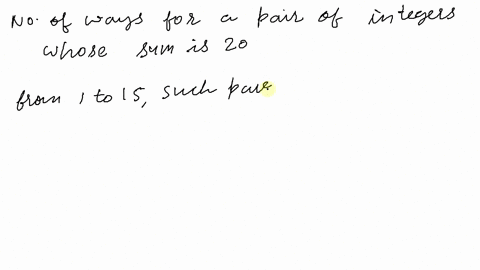 No. of ways for a pair of integers
whose sum is 20
from 1 to 15, such pair